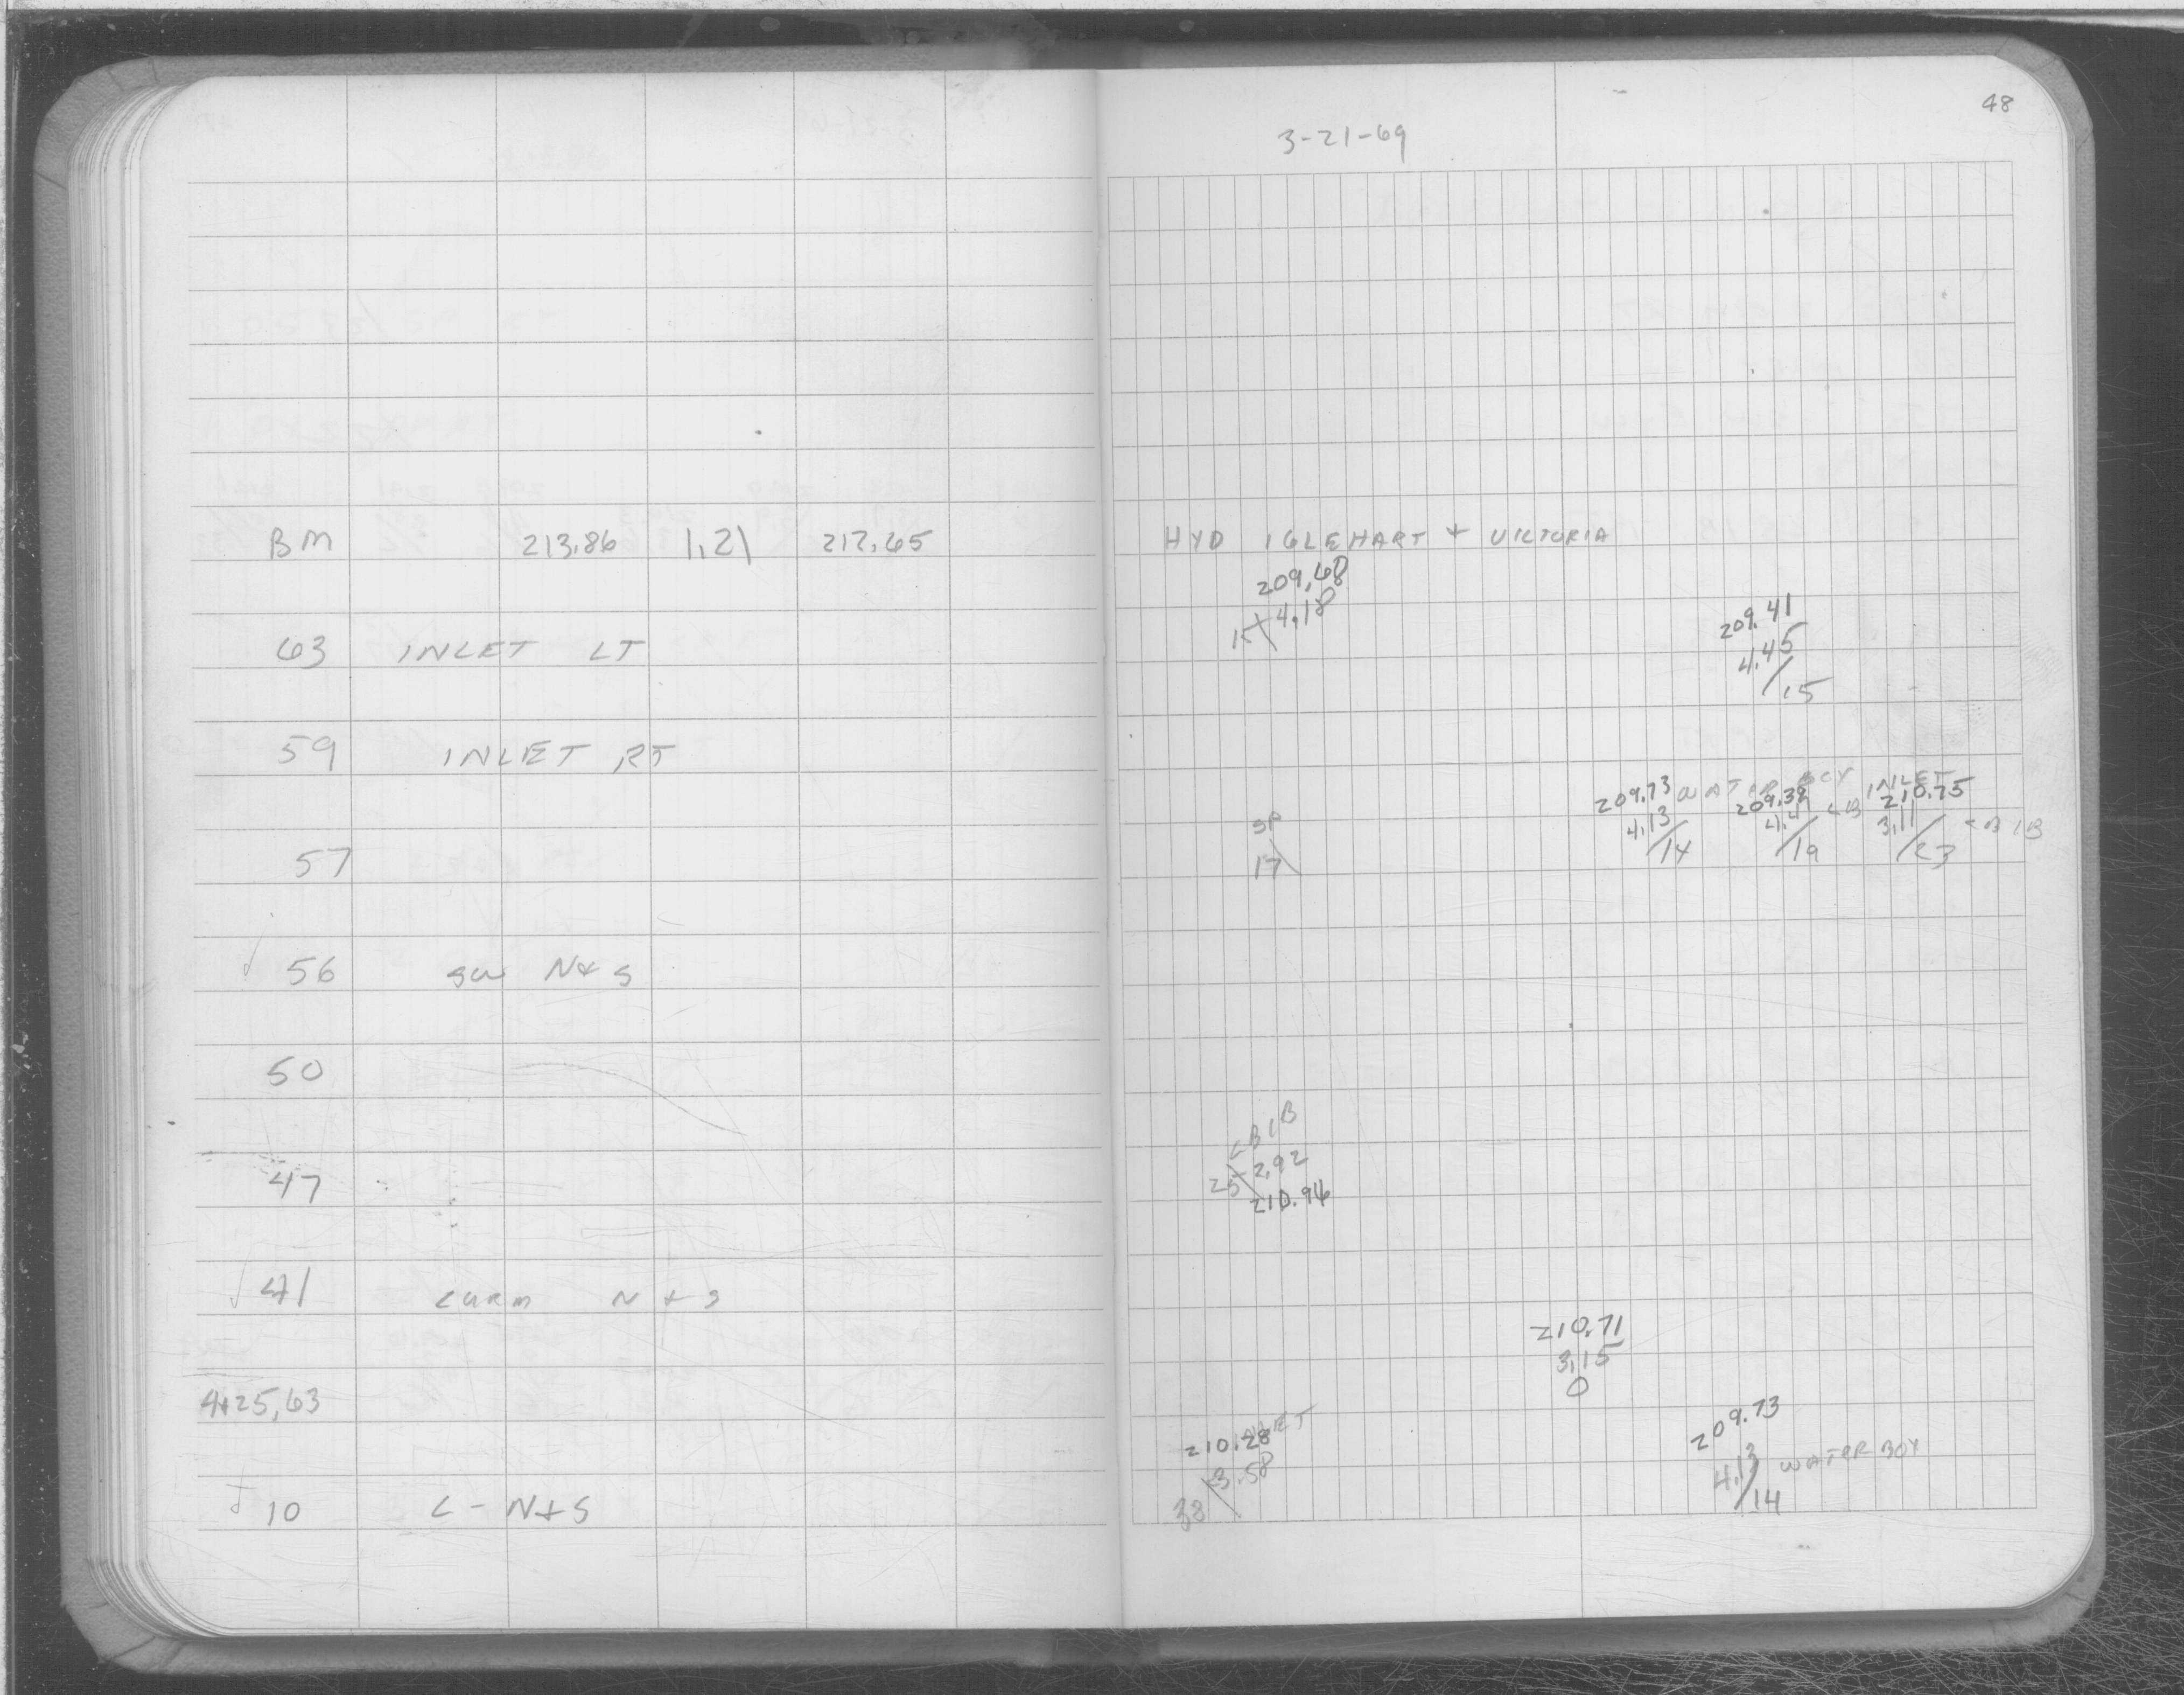 48
3-21-69
BM 213.86 1.21 212.65 HYD IGLEHART + VICTORIA
209.68
4.18
15
63 INLET LT
209.41
4.45
15
59 INLET RT
209.73 WATER BOX 209.39 INLET 210.75
4.13 4.47 CB 3.11 CB 1B
14 19 23
SP
17
57
56 SW N+S
50
CB 1B
2.92
25
210.94
47
41 CURM N+S
210.71
3.15
0
4+25.63
INLET
210.28
3.58
33
209.73
4.13 WATER BOX
14
10 C - N+S